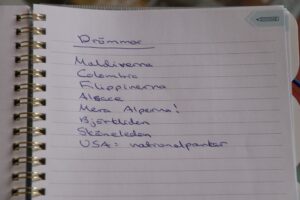 Drömmar
Maldiverna
Colombia
Filippinerna
Alsace
Mera Alperna!
Björkliden
Skåneleden
USA: nationalparker